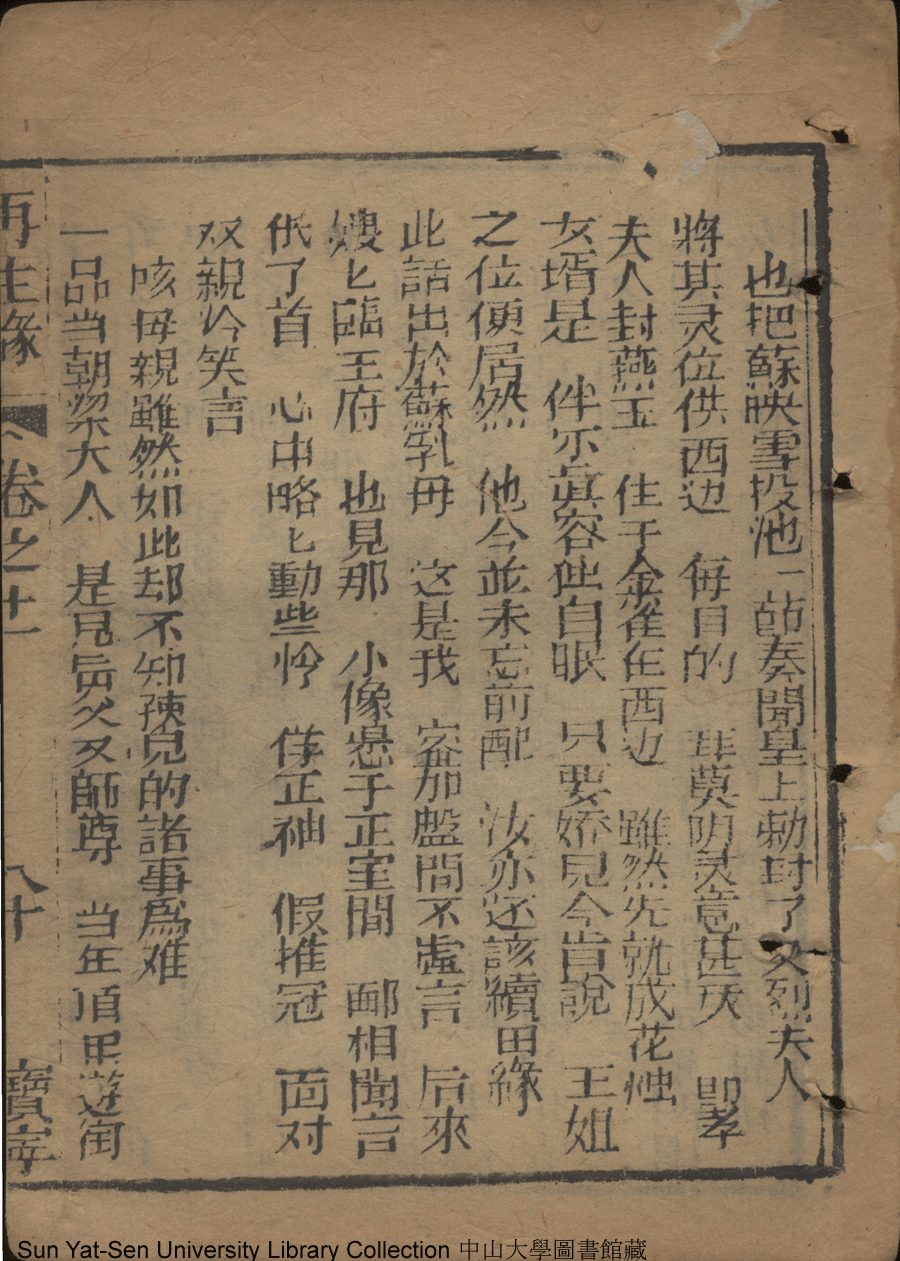 也把蘇映雪投池一節奏聞皇上勅封了义烈夫人
将其灵位供西边 每日的 拜奠阴灵意甚灰 即孝
夫人封燕玉 住于金雀在西边 雖然先就成花烛
女壻是 伴示真容独自眠 只要嬌兒今肯說 王姐
之位便居然 他今並未忘前配 汝亦还該續旧緣
此話出於蘇乳母 这是我 密加盤問不虛言 后來
嫂匕臨王府 也見那 小像悬于正室間 酈相聞言
低了首 心中略匕動些怜 佯正袖 假推冠 面对
双親冷笑言
咳母親雖然如此却不知孩兒的諸事為难
一品当朝梁大人 是兒岳父又師尊 当年項里遊街
再生緣 卷之十一 八十 寶寧
Sun Yat-Sen University Library Collection 中山大學圖書館藏